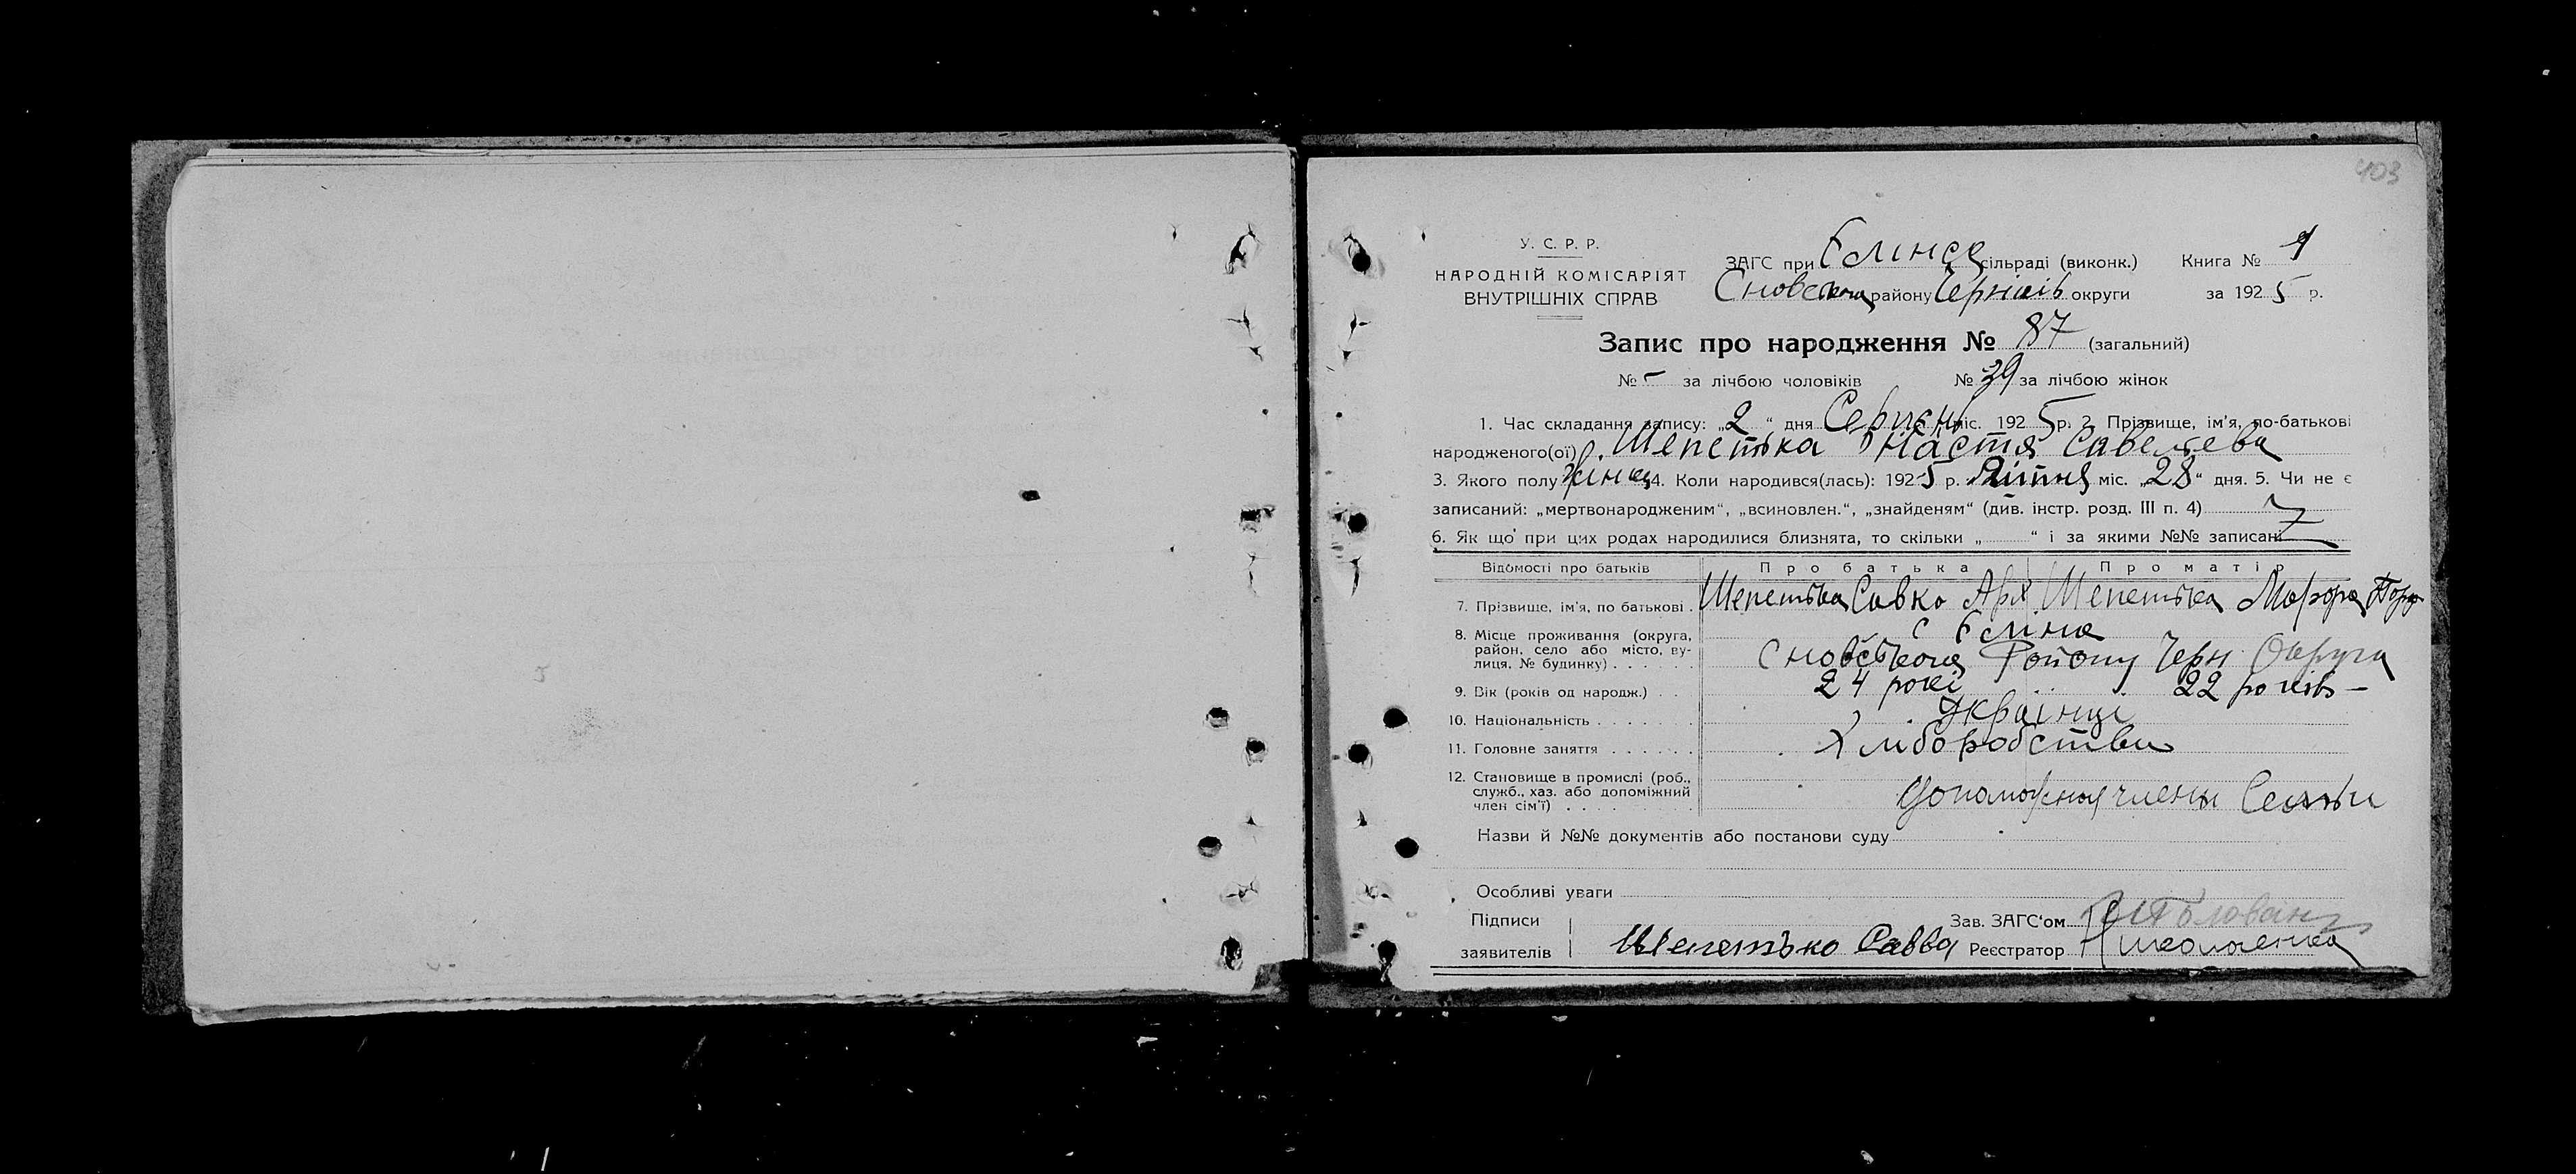 403
У. С. Р. Р.
НАРОДНІЙ КОМІСАРІЯТ
ВНУТРІШНІХ СПРАВ
ЗАГС при Єлінсе сільраді (виконк.) Книга № 1
Сновськ району Черніgів округи за 1925 р.
Запис про народження № 87 (загальний)
№ – за лічбою чоловіків № 39 за лічбою жінок
1. Час складання запису: „2“ дня Серпєнь міс. 1925 р. 2. Прізвище, ім’я, по-батькові
народженого(ої) Шепєтька Настя Савелєва
3. Якого полу 4. Коли народився(лась): 1925 р. Літня міс. „28“ дня. 5. Чи не є
записаний: „мертвонародженим“, „всиновлен.“, „знайденям“ (див. інстр. розд. III п. 4)
6. Як що при цих родах народилися близнята, то скільки „ “ і за якими №№ записані
Відомості про батьків Про батька Про матір
7. Прізвище, ім’я, по батькові . Шепетька Савка Арх Шепетька
8. Місце проживання (округа, с Єліна
район, село або місто, ву-
лиця, № будинку) . . . . . . Району Черн Округа
9. Вік (років од народж.) . . 24 рокі 22 років –
10. Національність . . . . . . . Українці
11. Головне заняття . . . . . . Хліборобства
12. Становище в промислі (роб.,
служб., хаз. або допоміжний члены Семьи
член сім’ї) . . . . . . . . .
Назви й №№ документів або постанови суду
Особливі уваги
Підписи Зав. ЗАГС‘ом
заявителів Шепетько Савва Реєстратор